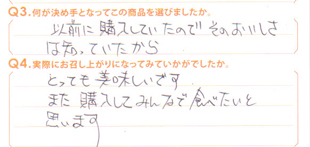 Q3.何が決め手となってこの商品を選びましたか。
以前に購入していたのでそのおいしさ
は知っていたから
Q4.実際にお召し上がりになってみていかがでしたか。
とっても美味しいです
また購入してみんなで食べたいと
思います